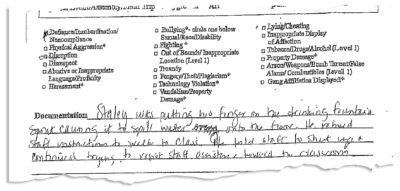 Defiance/Insubordination/
Noncompliance
□ Physical Aggression*
□ Disruption
□ Disrespect
□ Abusive or Inappropriate
Language/Profanity
□ Harassment*
□ Bullying*- circle one below
Sexual/Race/Disability
□ Fighting *
□ Out of Bounds/ Inappropriate
Location (Level 1)
□ Truancy
□ Forgery/Theft/Plagiarism*
□ Technology Violation*
□ Vandalism/Property
Damage*
□ Lying/Cheating
□ Inappropriate Display
of Affection
□ Tobacco/Drugs/Alcohol (Level 1)
□ Property Damage*
□ Arson/Weapons/Bomb Threat/False
Alarm/ Combustibles (Level 1)
□ Gang Affiliation Displayed*
Documentation was putting his finger on the drinking fountain
spout causing it to spill water onto the floor. He refused
staff instructions to walk to class. He told staff to shut up &
continued trying to resist staff toward the classroom